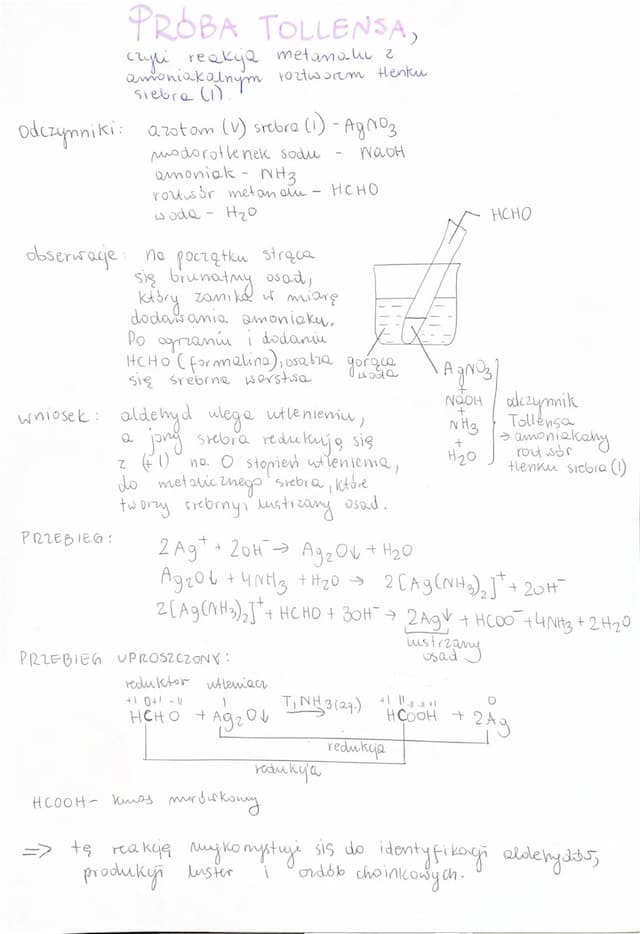 PRÓBA TOLLENSA,
czyli reakcja metanalu z
amoniakalnym roztworem tlenku
srebra (I)
Odczynniki: azotan (V) srebra (I) - AgNO₃
wodorotlenek sodu - NaOH
amoniak - NH₃
roztwór metanalu - HCHO
woda - H₂O
HCHO
obserwacje: na początku strąca
się brunatny osad,
który zanika w miarę
dodawania amoniaku.
Po ogrzaniu i dodaniu
HCHO (formalina), osadza
się srebrna warstwa
gorąca
woda
AgNO₃
+
NaOH
+
NH₃
+
H₂O
odczynnik
Tollensa
→ amoniakalny
roztwór
tlenku srebra (I)
wniosek: aldehyd ulega utlenieniu,
a jony srebra redukują się
z (+1) na 0 stopień utlenienia,
do metalicznego srebra, które
tworzy srebrny, lustrzany osad.
PRZEBIEG:
2Ag⁺ + 2OH⁻ → Ag₂O↓ + H₂O
Ag₂O↓ + 4NH₃ + H₂O → 2[Ag(NH₃)₂]⁺ + 2OH⁻
2[Ag(NH₃)₂]⁺ + HCHO + 3OH⁻ → 2Ag↓ + HCOO⁻ + 4NH₃ + 2H₂O
lustrzany
osad
PRZEBIEG UPROSZCZONY:
reduktor utleniacz
+I 0 +I -II I +I II 0
HCHO + Ag₂O↓ T, NH₃(aq.) → HCOOH + 2Ag
redukcja
redukcja
HCOOH - kwas mrówkowy
⇒ tę reakcję wykorzystuje się do identyfikacji aldehydów,
produkcji luster i ozdób choinkowych.